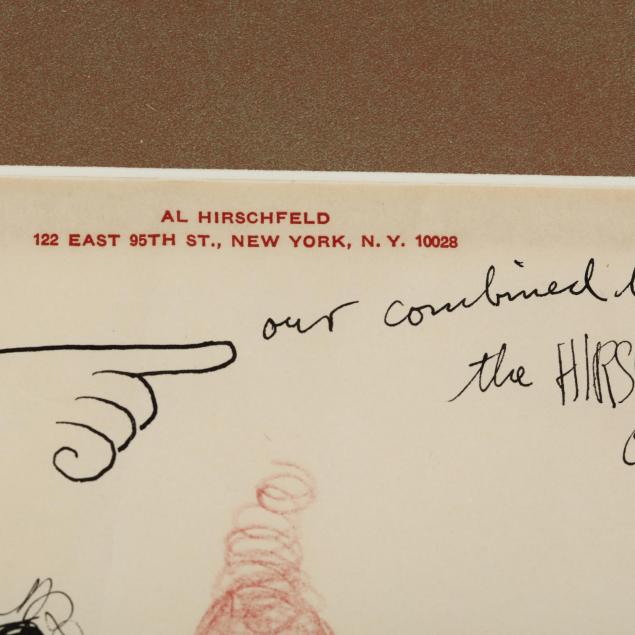 AL HIRSCHFELD
122 EAST 95TH ST., NEW YORK, N. Y. 10028
our combined
the HIRS